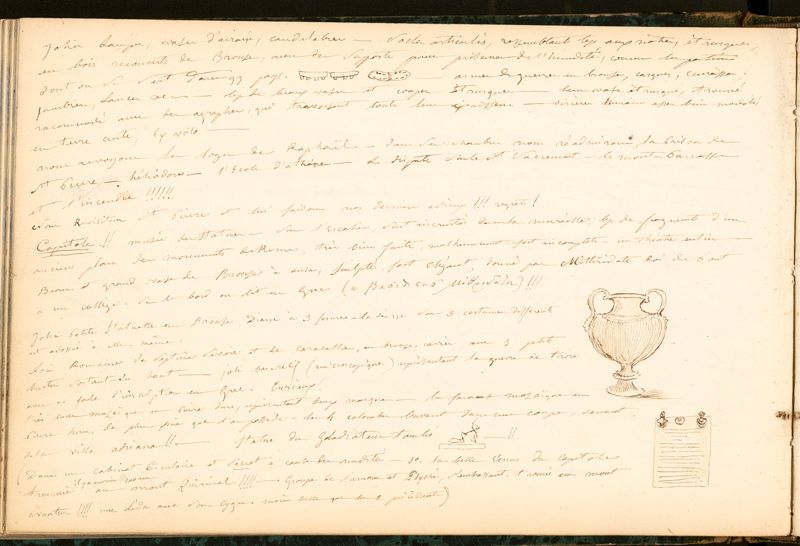 Jolie lampe, vases d'airain, candelabres — socles articulés, ressemblant bcp aux notres, étrusques,
en bois recouvert de Bronze, avec des supports pour préserver de l'humidité, comme les
dont on se sert dans pays. — armes de guerre en bronze, casques, cuirasse.
jambières, lances — bcp de beaux vases et coupes Etrusques — beau vase étrusque, trouvé
raccommodé avec des agraphes, qui traversent toute leur épaisseur — viscères humains assez bien modelés
en terre cuite, Ex voto —
nous revoyons les loges de Raphaël — dans les chambres nous réadmirons, la prison de
St Pierre — héliodore — l'Ecole d'athènes — La dispute du St Sacrement — le mont Parnasse
et l'incendie !!!!!!
St Pierre et lui faisons nos derniers adieux !!! regrets !
Capitole !!! musée des statues — Sur l'Escalier sont incrustés dans la muraille, bcp de fragments d'un
ancien plan des monuments de Rome, très bien faits, malheureusement fort incomplets — un théâtre entier —
Beau et grand vase de Bronze à anse, sculpté, fort élégant, donné par Mithridate Roi de Pont
à un collège. Sur le bord on lit en grec
Jolie petite statuette en Bronze Diane à 3 formes — la déesse dans 3 costumes différents
est adossée à elle-même.
Loi Romaine de Septime Sévère et de Caracalla, en bronze, carrée avec 3 petits
bustes sortant du haut — joli bas-relief (microscopique) représentant la guerre de troie
avec une foule d'inscriptions en Grec. Curieux!
très belle mosaïque en pierre dure, représentant deux masques — la fameuse mosaïque en
pierre dure, la plus fine que l'on possède — les 4 colombes buvant dans une coupe, venant
de la villa adriana !!! — Statue du Gladiateur tombé — !!.
(Dans un cabinet Circulaire et Secret à cause des nudités — la belle Venus du Capitole
trouvée au mont Quirinal !!!! — Groupe de l'amour et Psyché, s'embrassant, trouvé au mont
aventin !!!! une Léda avec son cygne. moins belle que les 2 précédents)